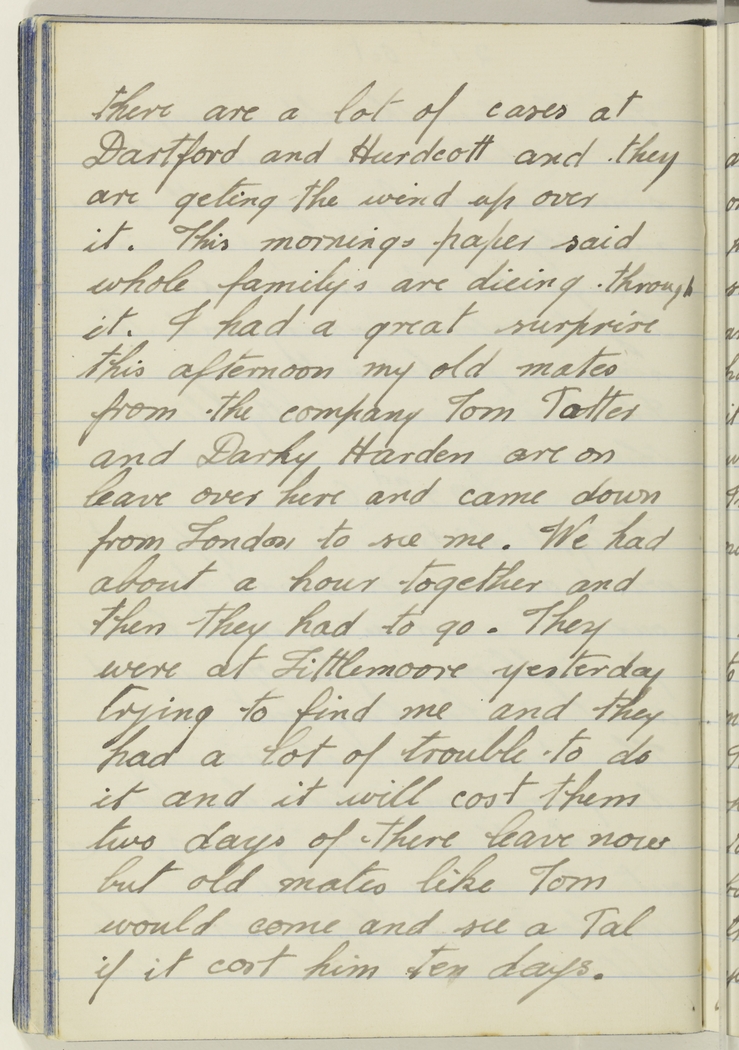 there are a lot of cases at
Dartford and Hurdcott and they
are geting the wind up over
it. This mornings paper said
whole family's are dieing through
it. I had a great surprise
this afternoon my old mates
from the company Tom Tatter
and Darky Harden are on
leave over here and came down
from London to see me. We had
about a hour together and
then they had to go. They
were at Littlemoore yesterday
trying to find me and they
had a lot of trouble to do
it and it will cost them
two days of there leave now
but old mates like Tom
would come and see a Tal
if it cost him ten days.